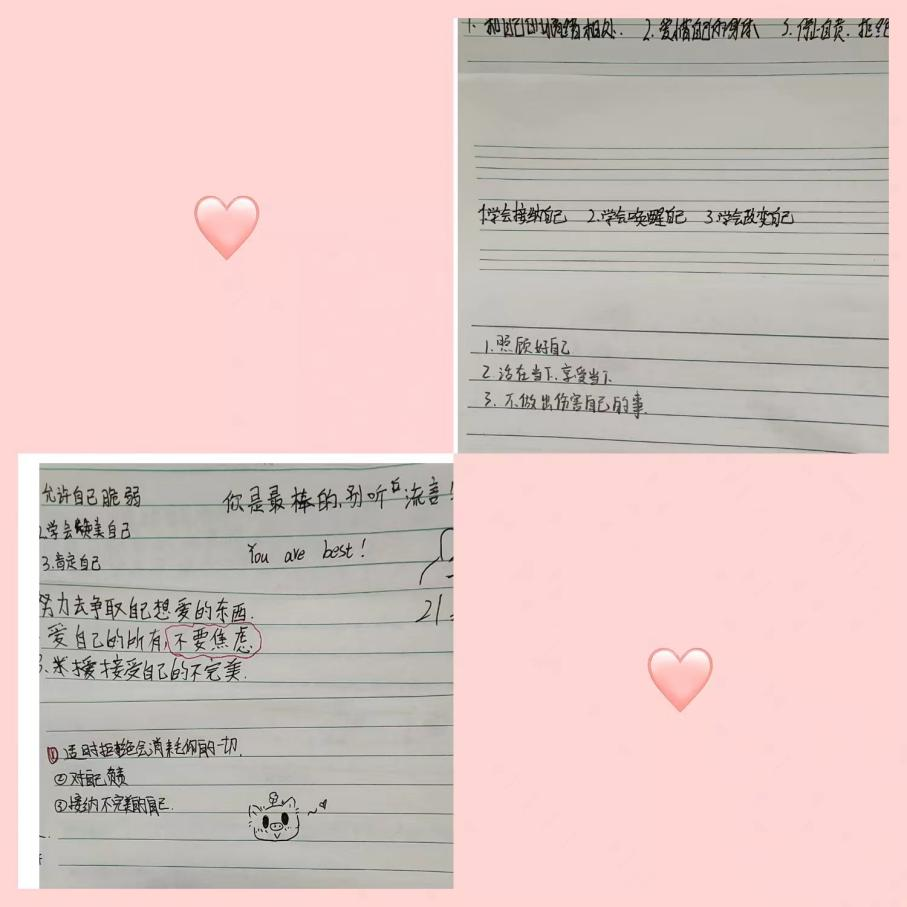 1. 和自己的情绪相处. 2. 爱惜自己的身体 3. 停止自责. 拒绝
1.学会接纳自己 2.学会唤醒自己 3.学会改变自己
1.照顾好自己
2.活在当下.享受当下
3. 不做出伤害自己的事.
允许自己脆弱
你是最棒的,别听 流言!
2.学会赞美自己
You are best!
3.肯定自己
21
努力去争取自己想爱的东西.
爱自己的所有,不要焦虑.
接受自己的不完美.
①适时拒绝会消耗你的一切.
②对自己负责
③接纳不完美的自己.